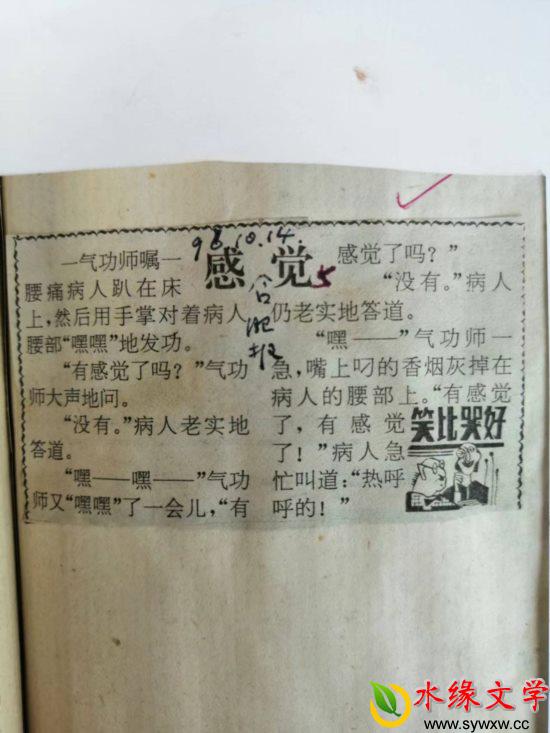 98.10.14
感觉
5
合肥报
一气功师嘱一
腰痛病人趴在床
上，然后用手掌对着病人
腰部“嘿嘿”地发功。
“有感觉了吗？”气功
师大声地问。
“没有。”病人老实地
答道。
“嘿——嘿——”气功
师又“嘿嘿”了一会儿，“有
感觉了吗？”
“没有。”病人
仍老实地答道。
“嘿——”气功师一
急，嘴上叼的香烟灰掉在
病人的腰部上。“有感觉
了，有感觉
了！”病人急
忙叫道：“热呼
呼的！”
笑比哭好
水缘文学
www.sywxw.cc